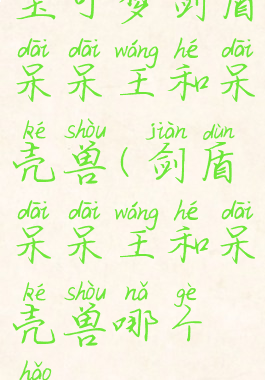 宝可梦剑盾
dāi dāi wáng hé dāi
呆呆王和呆
ké shòu jiàn dùn
壳兽(剑盾
dāi dāi wáng hé dāi
呆呆王和呆
ké shòu nǎ gè
壳兽哪个
hǎo